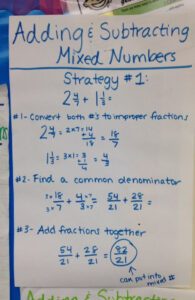 Adding & Subtracting
Mixed Numbers
Strategy #1:
2 4/7 + 1 1/3 =
#1- Convert both #s to improper fractions
2 4/7 = 2×7=14
+4
18
18/7
1 1/3 = 3×1=3
+1
4
4/3
#2- Find a common denominator
3×18/3×7 + 4×7/3×7 = 54/21 + 28/21 =
#3- Add fractions together
54/21 + 28/21 = 82/21
can put into
mixed #
Adding & Subtrac